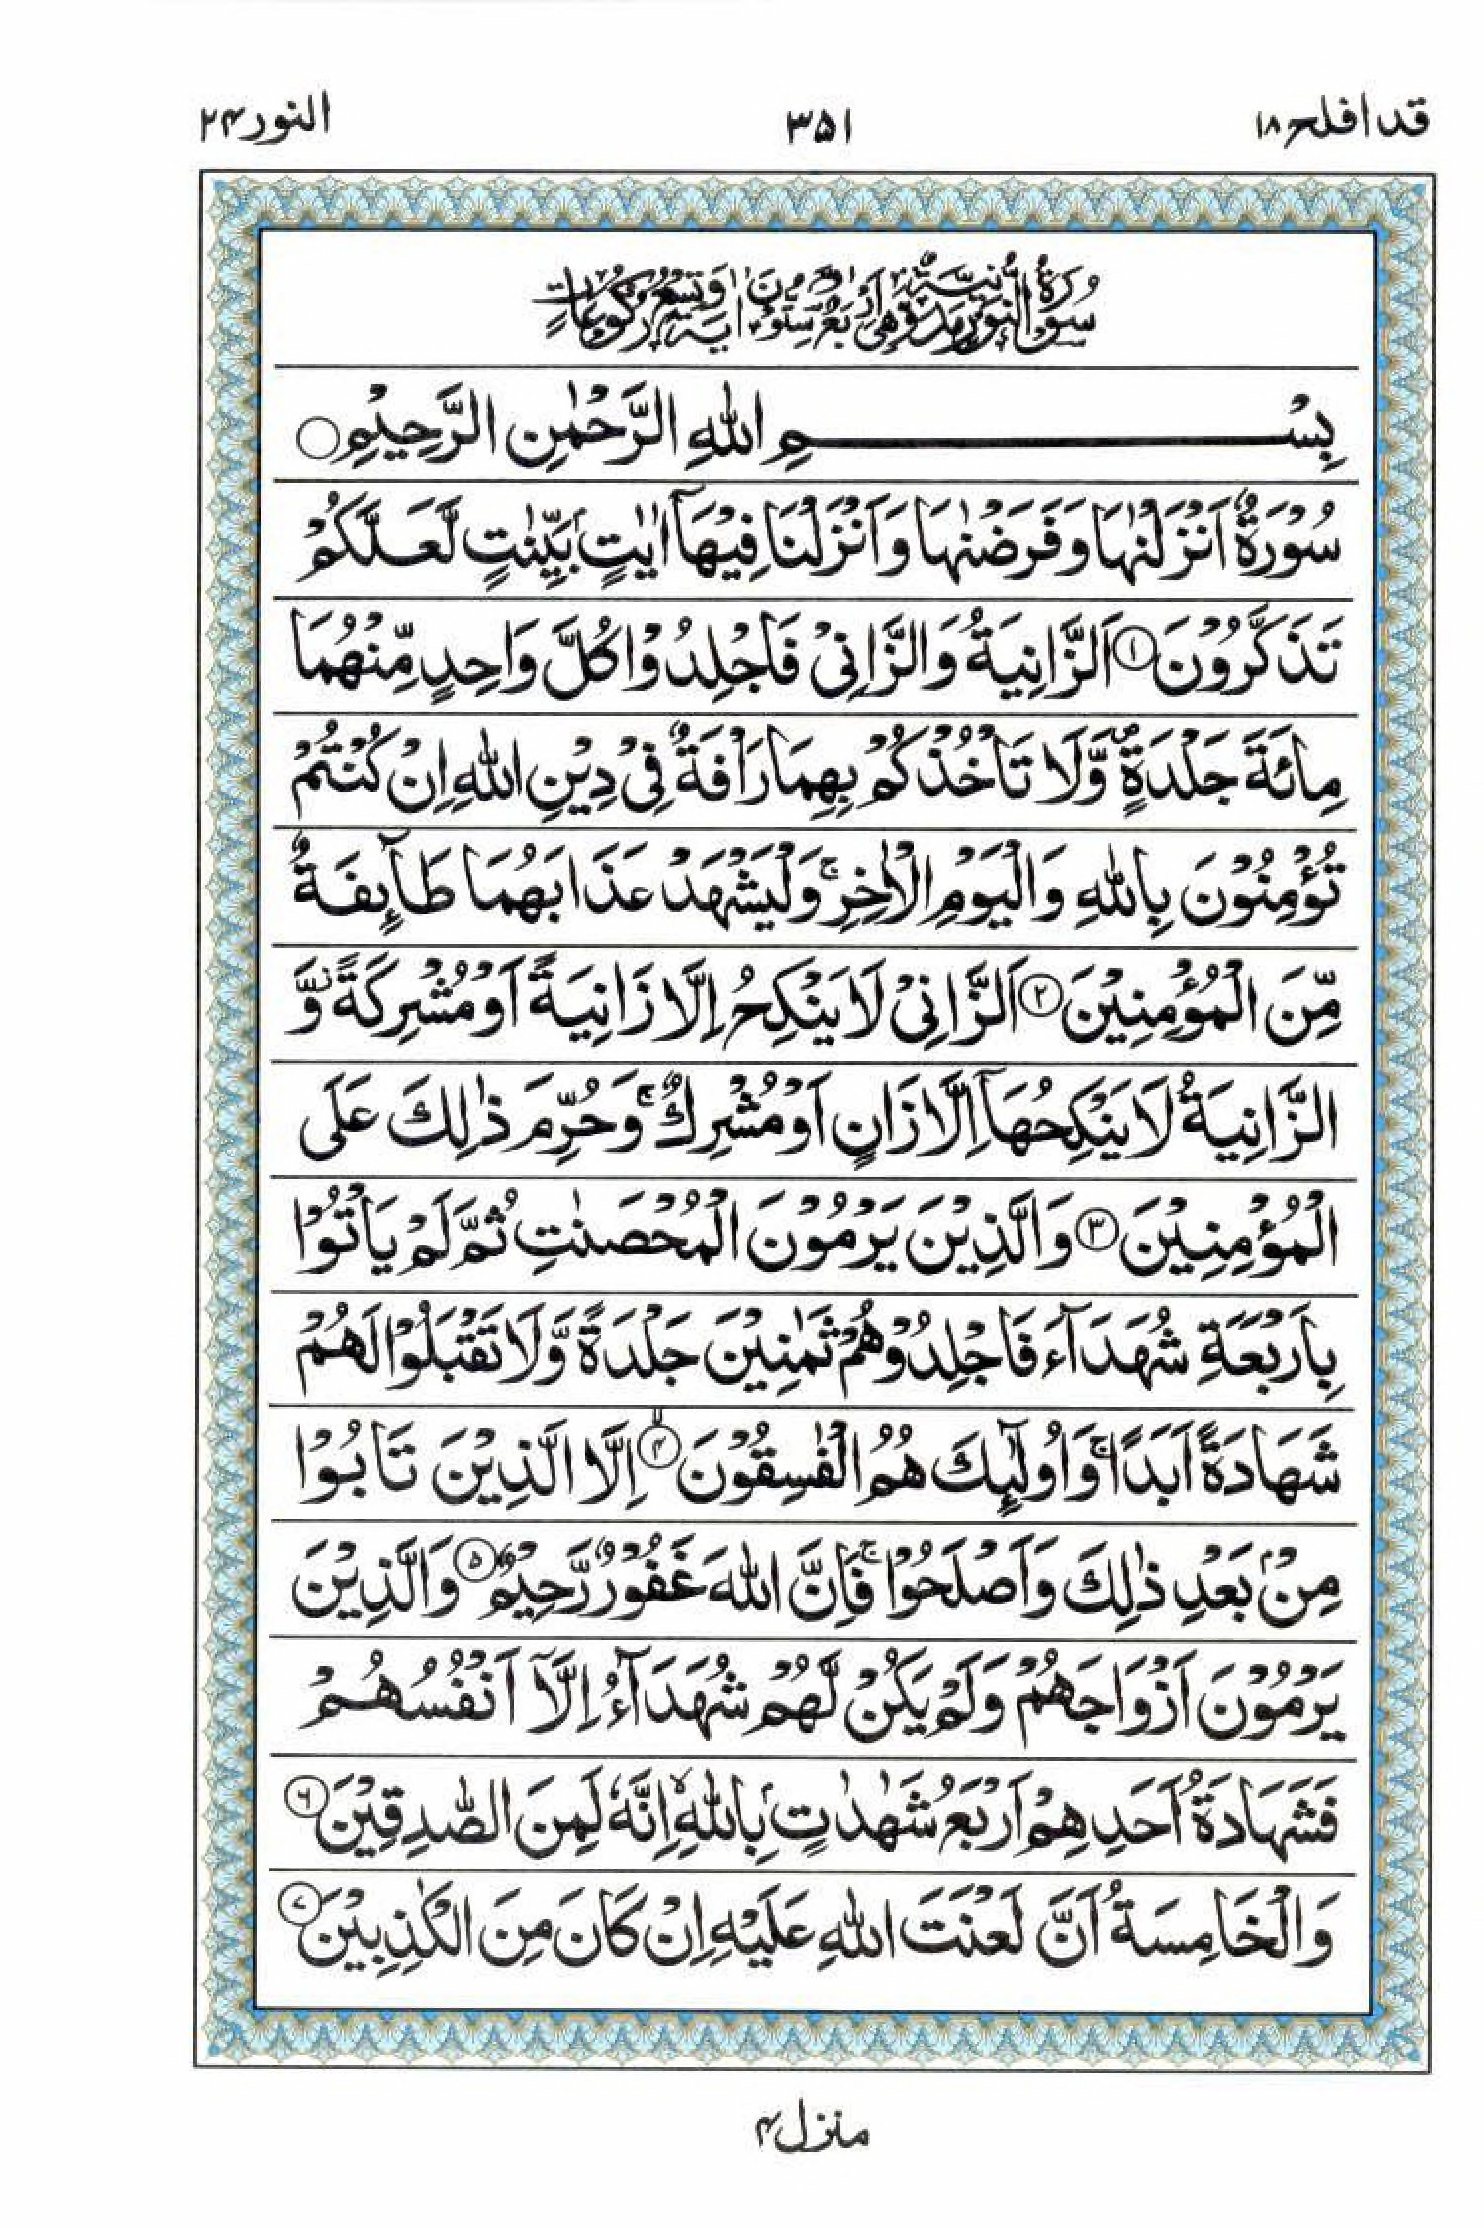 قد افلح ۱۸
۳۵۱
النور ۲۴
سُوْرَةُ النُّوْرِ مَدَنِيَّةٌ وَّهِيَ اَرْبَعٌ وَّسِتُّوْنَ اٰيَةً وَّتِسْعُ رُكُوْعَاتٍ
بِسْمِ اللهِ الرَّحْمٰنِ الرَّحِيْمِ ○
سُوْرَةٌ اَنْزَلْنٰهَا وَفَرَضْنٰهَا وَاَنْزَلْنَا فِيْهَاۤ اٰيٰتٍۭ بَيِّنٰتٍ لَّعَلَّكُمْ
تَذَكَّرُوْنَ ۱ اَلزَّانِيَةُ وَالزَّانِيْ فَاجْلِدُوْا كُلَّ وَاحِدٍ مِّنْهُمَا
مِائَةَ جَلْدَةٍ ۪ وَّلَا تَاْخُذْكُمْ بِهِمَا رَاْفَةٌ فِيْ دِيْنِ اللهِ اِنْ كُنْتُمْ
تُؤْمِنُوْنَ بِاللهِ وَالْيَوْمِ الْاٰخِرِ ۚ وَلْيَشْهَدْ عَذَابَهُمَا طَآئِفَةٌ
مِّنَ الْمُؤْمِنِيْنَ ۲ اَلزَّانِيْ لَا يَنْكِحُ اِلَّا زَانِيَةً اَوْ مُشْرِكَةً ۡ وَّ
الزَّانِيَةُ لَا يَنْكِحُهَاۤ اِلَّا زَانٍ اَوْ مُشْرِكٌ ۚ وَحُرِّمَ ذٰلِكَ عَلَى
الْمُؤْمِنِيْنَ ۳ وَالَّذِيْنَ يَرْمُوْنَ الْمُحْصَنٰتِ ثُمَّ لَمْ يَاْتُوْا
بِاَرْبَعَةِ شُهَدَآءَ فَاجْلِدُوْهُمْ ثَمٰنِيْنَ جَلْدَةً وَّلَا تَقْبَلُوْا لَهُمْ
شَهَادَةً اَبَدًا ۚ وَاُولٰٓئِكَ هُمُ الْفٰسِقُوْنَ ۴ اِلَّا الَّذِيْنَ تَابُوْا
مِنْۢ بَعْدِ ذٰلِكَ وَاَصْلَحُوْا ۚ فَاِنَّ اللهَ غَفُوْرٌ رَّحِيْمٌ ۵ وَالَّذِيْنَ
يَرْمُوْنَ اَزْوَاجَهُمْ وَلَمْ يَكُنْ لَّهُمْ شُهَدَآءُ اِلَّاۤ اَنْفُسُهُمْ
فَشَهَادَةُ اَحَدِهِمْ اَرْبَعُ شَهٰدٰتٍۭ بِاللهِ ۙ اِنَّهٗ لَمِنَ الصّٰدِقِيْنَ ۶
وَالْخَامِسَةُ اَنَّ لَعْنَتَ اللهِ عَلَيْهِ اِنْ كَانَ مِنَ الْكٰذِبِيْنَ ۷
منزل ۴